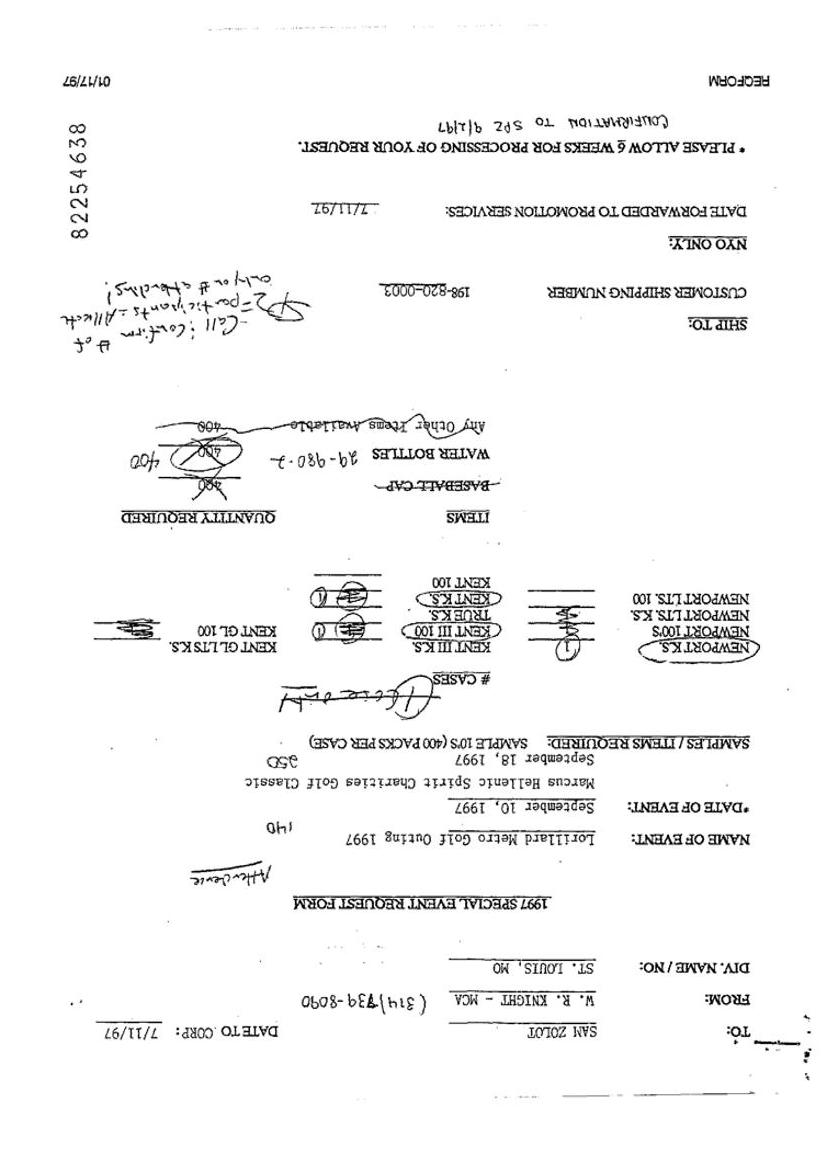 TO: SAM ZOLOT DATE TO CORP: 7/11/97
FROM: W. R. KNIGHT - MCA (314) 739-8090
DIV. NAME / NO: ST. LOUIS, MO
1997 SPECIAL EVENT REQUEST FORM
Attendence
NAME OF EVENT: Lorillard Metro Golf Outing 1997 140
*DATE OF EVENT: September 10, 1997
Marcus Hellenic Spirit Charities Golf Classic
September 18, 1997 250
SAMPLES / ITEMS REQUIRED: SAMPLE 10'S (400 PACKS PER CASE)
1 Case only
# CASES
NEWPORT K.S. 1 KENT III K.S. KENT GL LTS K.S.
NEWPORT 100'S KENT III 100 1 KENT GL 100
NEWPORT LTS. K.S. TRUE K.S.
NEWPORT LTS. 100 KENT K.S. 1
KENT 100
ITEMS QUANTITY REQUIRED
BASEBALL CAP 400
WATER BOTTLES 29-980-2 400 400
Any Other Items Available 400
SHIP TO:
CUSTOMER SHIPPING NUMBER 198-820-0002
- Call; Confirm # of
2 = participants = Allocate
only for # attending!
NYO ONLY:
DATE FORWARDED TO PROMOTION SERVICES: 7/11/97
* PLEASE ALLOW 6 WEEKS FOR PROCESSING OF YOUR REQUEST.
CONFIRMATION TO SPZ 9/2/97
82254638
REQFORM 01/17/97